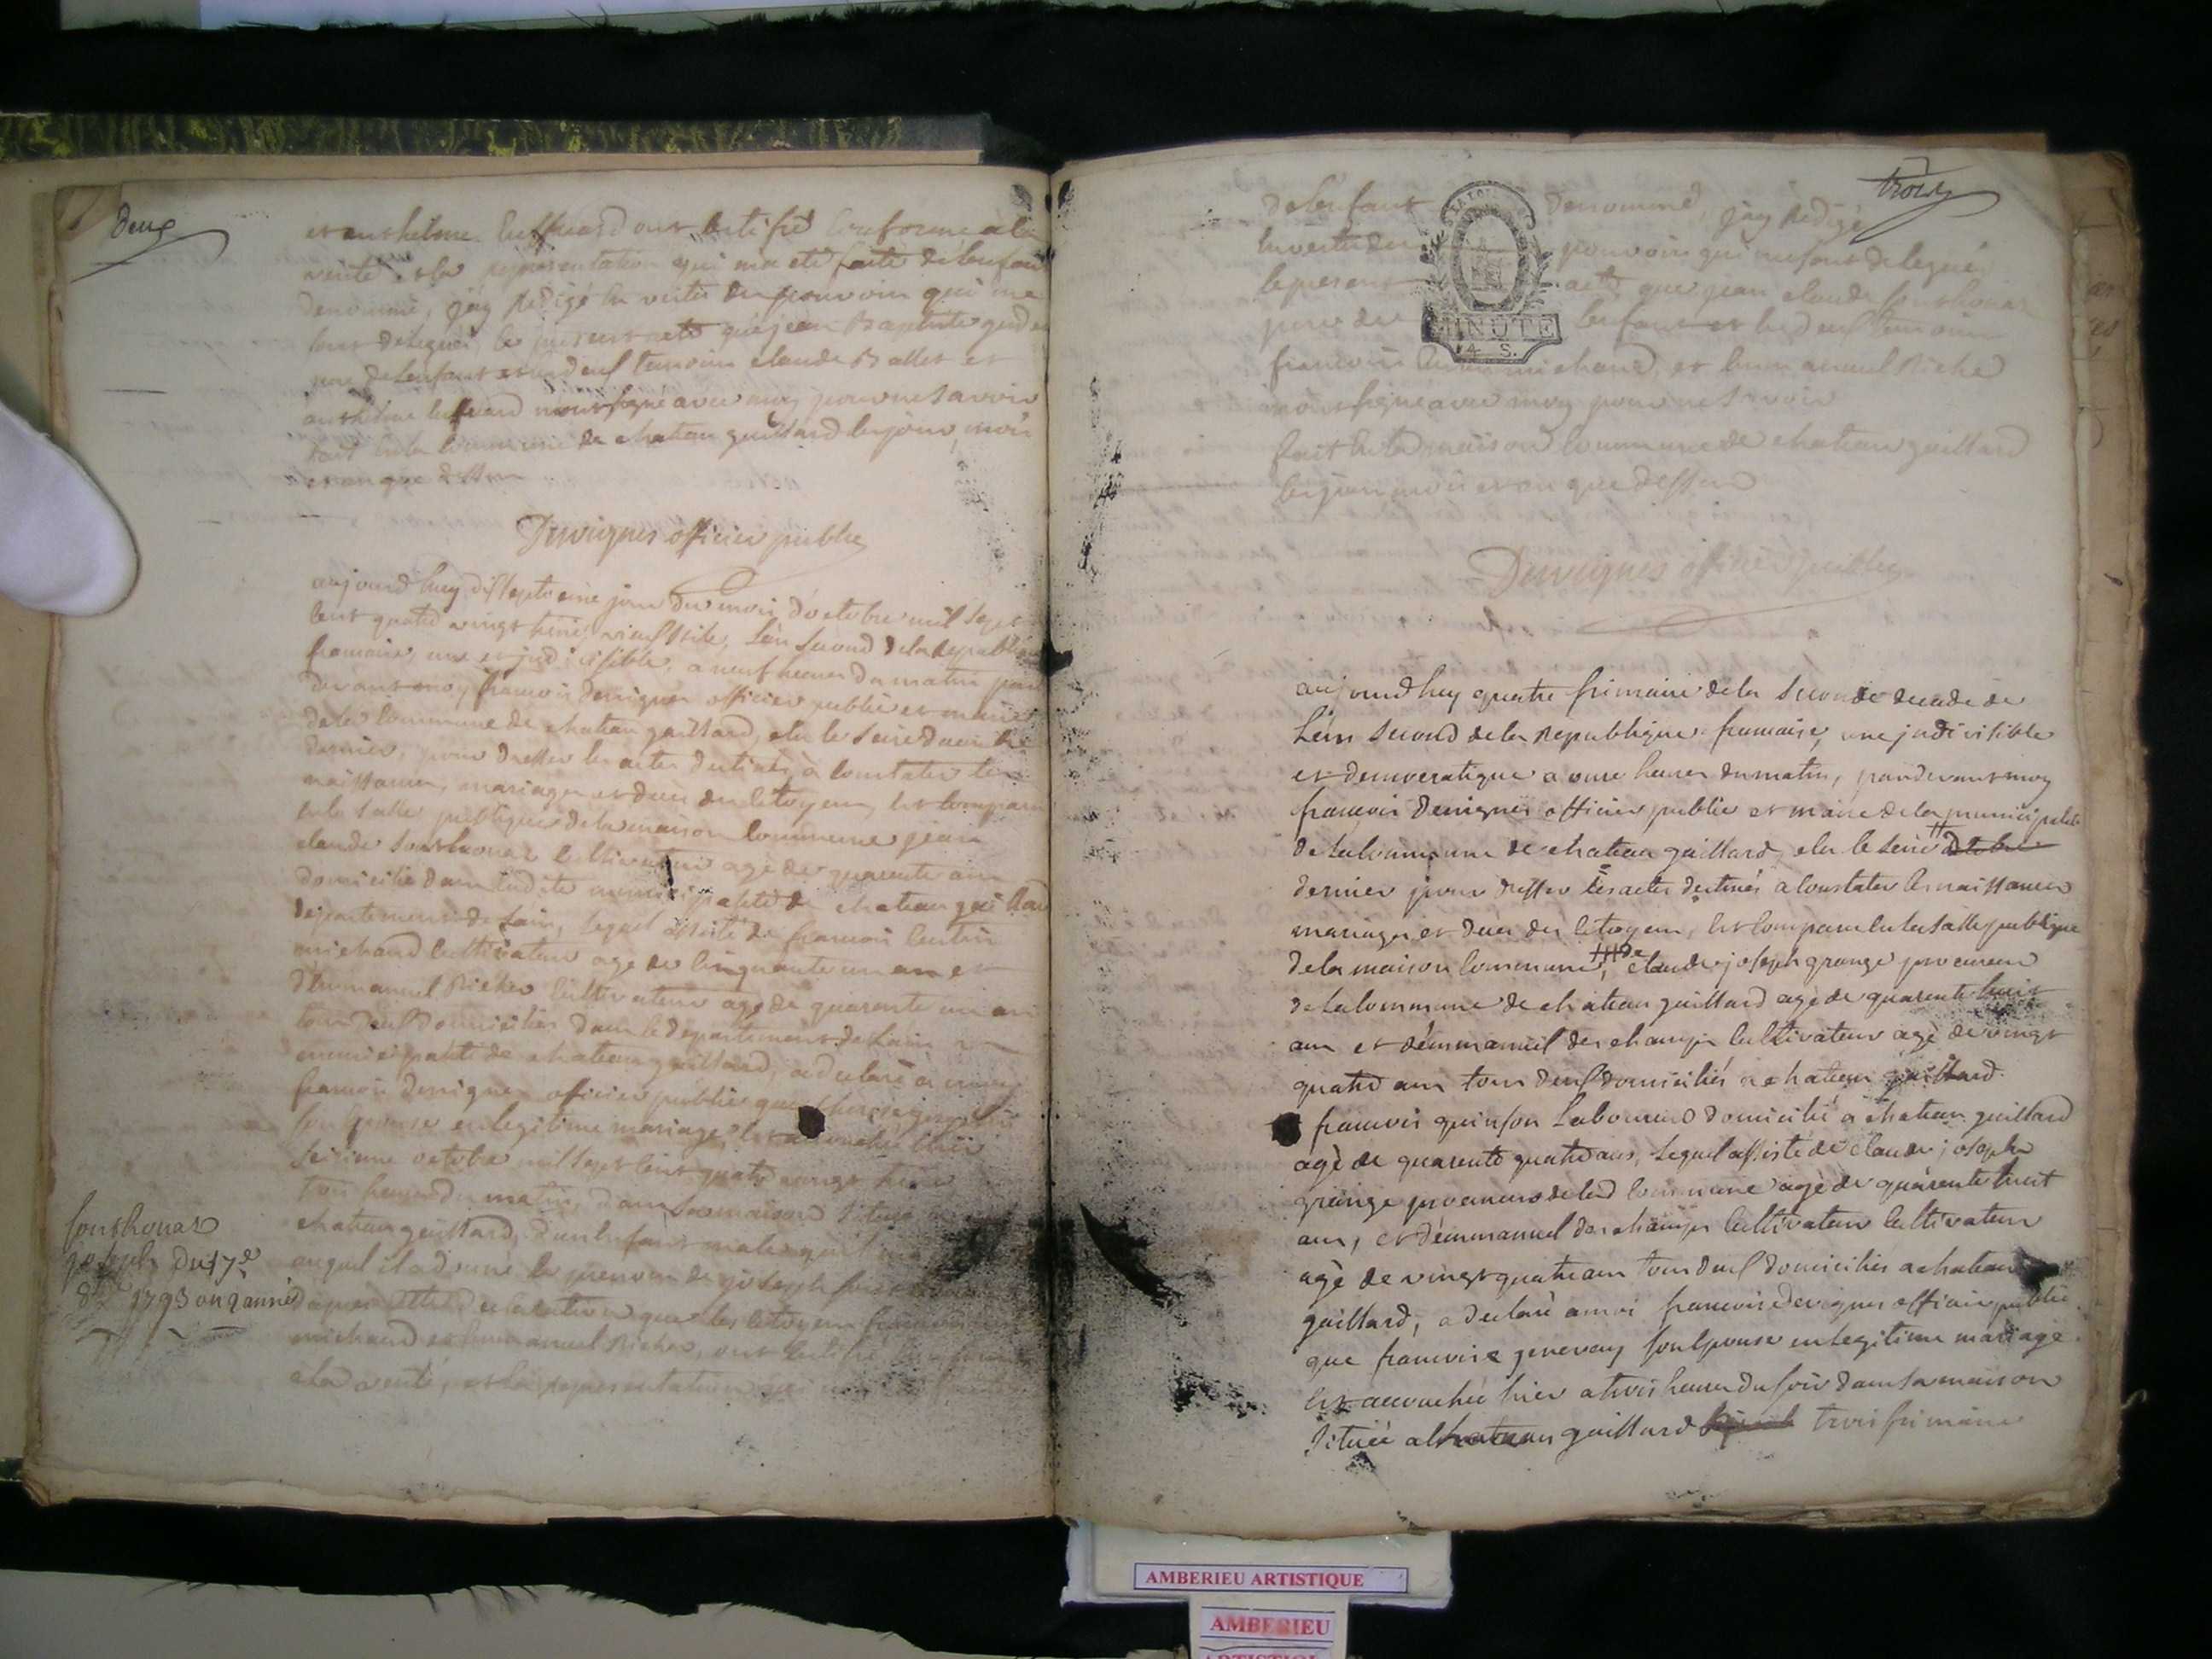 deux
et anthelme ont certifié conforme a la
verité et la representation qui ma eté faite de lenfant
denommé, jay redigé en vertu du pouvoir qui me
sont delegués le present acte que jean Baptiste
pere de lenfant et deux temoins claude Ballet et
anthelme nont signé avec moy pour ne savoir
fait en la commune de chateau gaillard les jour, mois
et an que dessus
Dervignes officier public
aujourdhuy dixseptieme jour du mois doctobre mil sept
cent quatre vingt treize vieux stile, lan second de la republique
francaise, une et indivisible, a neuf heures du matin par
devant moy francois Dervignes officier public et maire
de la commune de chateau gaillard, elu le seize
dernier, pour dresser les actes destinés à constater les
naissances, mariages et deces des citoyens, est comparu
en la salle publique de la maison commune jean
claude fonthonas cultivateur agé de quarente ans
domicilié dans ladite municipalité de chateau gaillard
departement de lain, lequel assisté de francois
michaud cultivateur agé de cinquante un an et
d'emmanuel Richer cultivateur agé de quarente un an
tous deux domiciliés dans le departement de lain
municipalité de chateau gaillard, a declaré à moy
francois Dervignes officier public que
son epouse en legitime mariage, est accouchée hier
seizieme octobre mil sept cent quatre vingt treize
trois heures du matin, dans sa maison située
chateau gaillard, d'un enfant male
auquel il a donné le prenom de joseph
dapres cette declaration que les citoyens francois
michaud et emmanuel Richer, ont certifié conforme
a la verité, et la representation qui
fonthonas
joseph du 17e
8bre 1793 ou 2 année
trois
de lenfant denommé, jay redigé
en vertu des pouvoirs qui me sont delegués
le present acte que jean claude fonthonas
pere de lenfant et les deux temoins
francois michaud, et emmanuel Richer
nont signé avec moy pour ne savoir
fait en la maison commune de chateau gaillard
les jour mois et an que dessus
MINUTE
4 S.
Dervignes officier public
aujourdhuy quatre frimaire de la seconde decade de
Lan second de la republique francaise, une indivisible
et democratique a onze heures du matin, pardevant moy
francois Dervignes officier public et maire de la municipalité
de la commune de chateau gaillard elu le seize
dernier pour dresser les actes destinés a constater les naissances
mariages et deces des citoyens, est comparu en la salle publique
de la maison commune, de claude joseph grange procureur
de la commune de chateau gaillard agé de quarente huit
ans et d'emmanuel des champs cultivateur agé de vingt
quatre ans tous deux domiciliés a chateau gaillard
francois quinson Laboureur domicilié a chateau gaillard
agé de quarente quatre ans, lequel assisté de claude joseph
grange procureur de lad commune agé de quarente huit
ans, et d'emmanuel des champs cultivateur cultivateur
agé de vingt quatre ans tous deux domiciliés a chateau
gaillard, a declaré a moi francois dervignes officier public
que francoise genevay son epouse en legitime mariage
est accouchée hier a trois heures du soir dans sa maison
située a chateau gaillard trois frimaire
AMBERIEU ARTISTIQUE
AMBERIEU